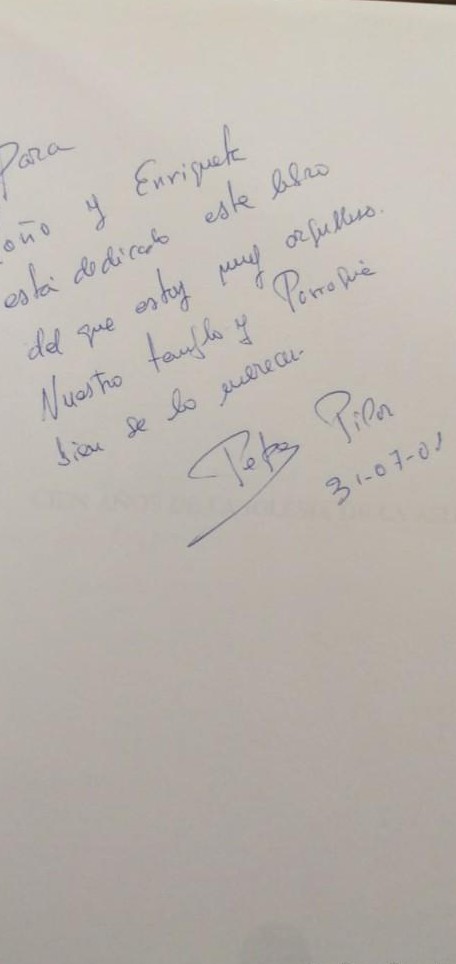 Para
oño y Enriqueta
está dedicado este libro
del que estoy muy orgulloso.
Nuestro templo y Parroquia
bien se lo merecen.
Pilar
31-07-01